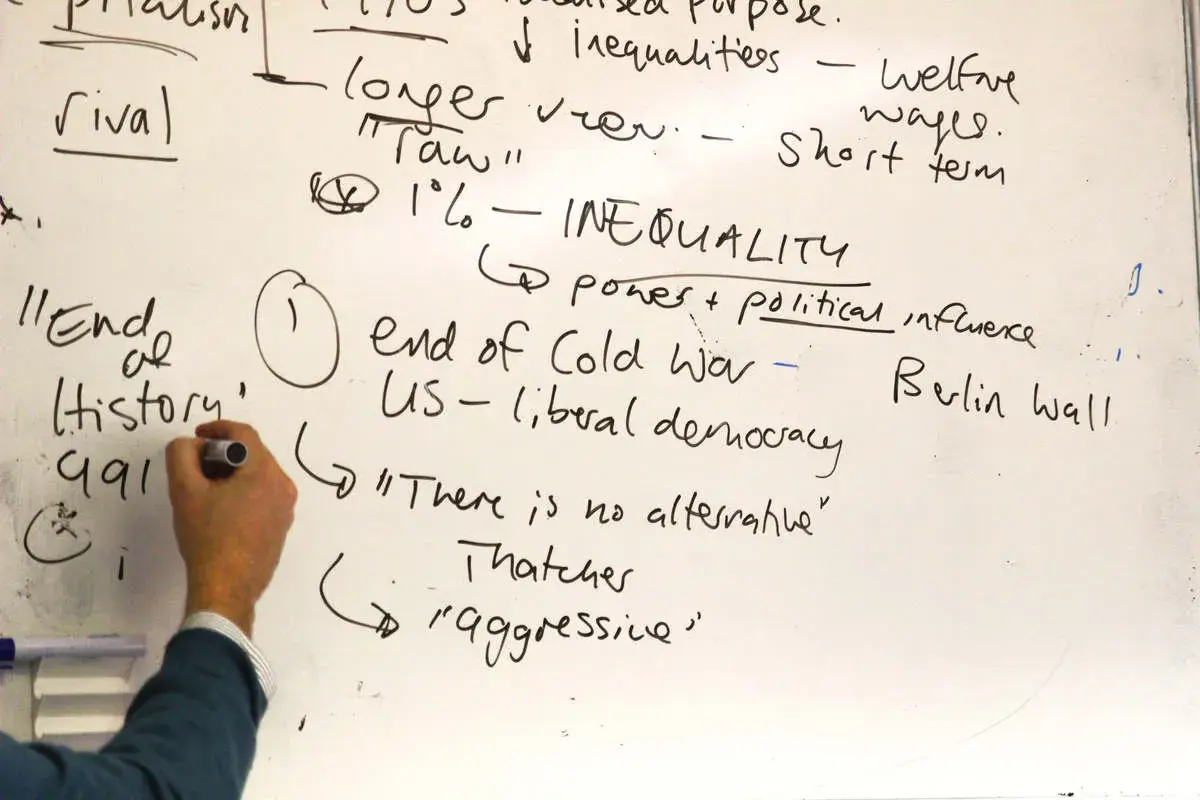 rival
↓ inequalities – welfare
wages.
longer view. – short term
"raw"
1% – INEQUALITY
power + political influence
"End
of
History"
991
1
end of Cold War – Berlin Wall
US – liberal democracy
"There is no alternative"
Thatcher
"aggressive"